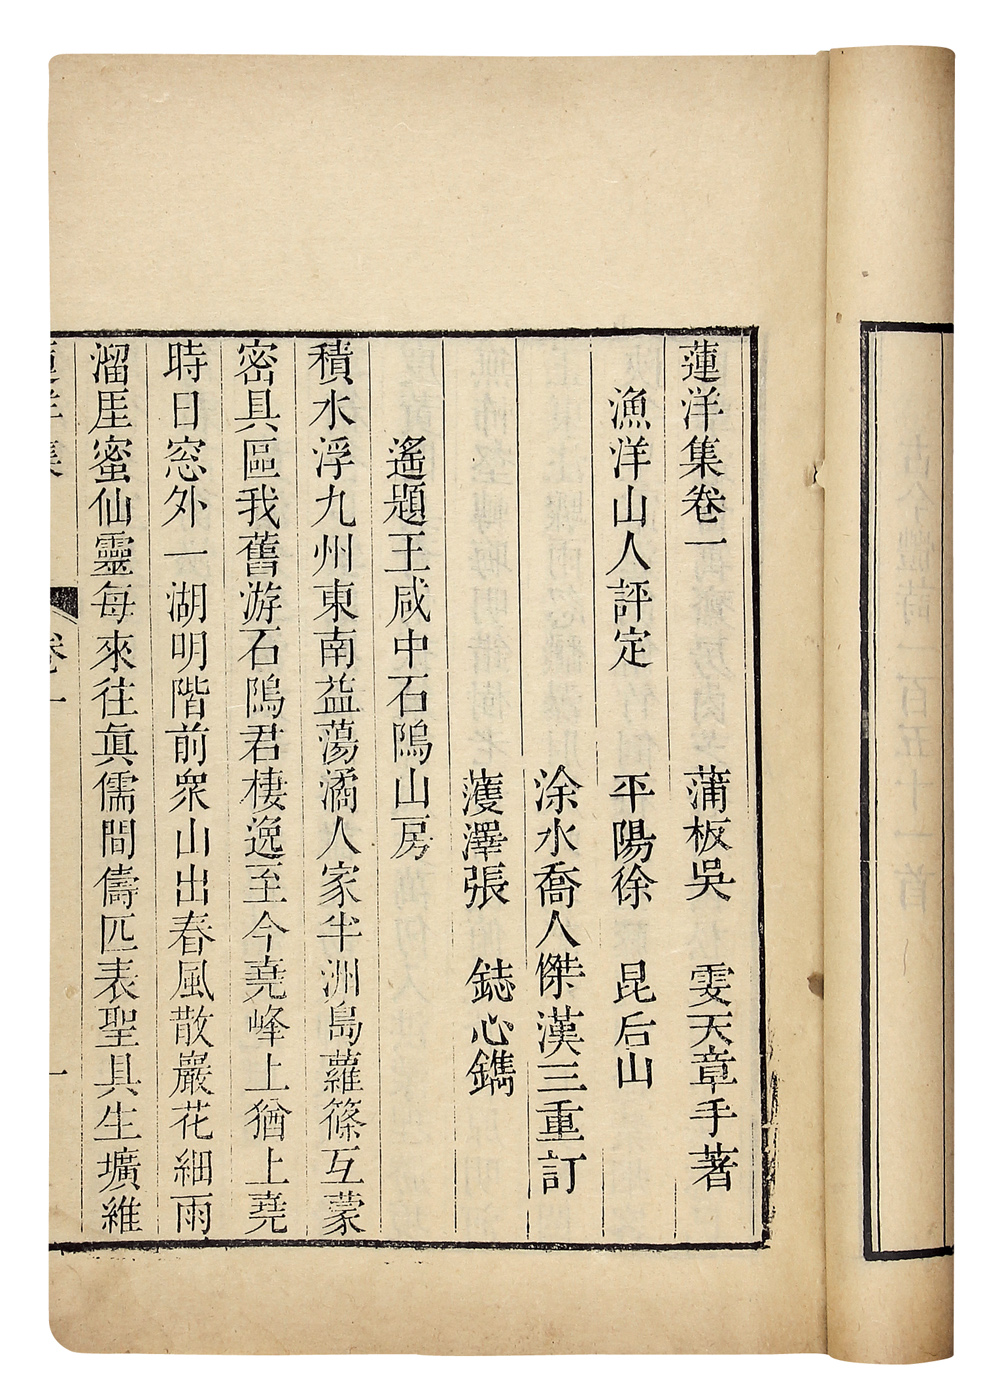 蓮洋集卷一
蒲板吳　雯天章手著
漁洋山人評定　平陽徐　昆后山
涂水喬人傑漢三重訂
濩澤張　鋕心鐫
遙題王咸中石隖山房
積水浮九州東南益蕩潏人家半洲島蘿篠互蒙
密具區我舊游石隖君棲逸至今堯峰上猶上堯
時日窓外一湖明階前衆山出春風散巖花細雨
溜厓蜜仙靈每來往眞儒間儔匹表聖具生壙維
蓮洋集　卷一　一